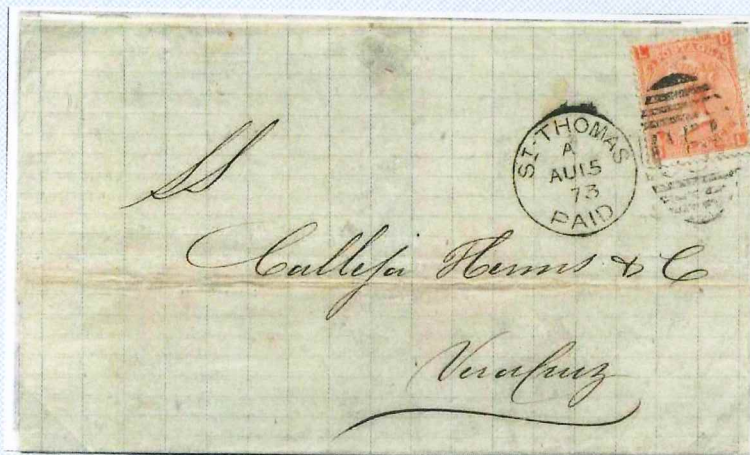 POSTAGE
ST. THOMAS
A
AU 15
73
PAID
SS
Calleja Herms. & C
VeraCruz